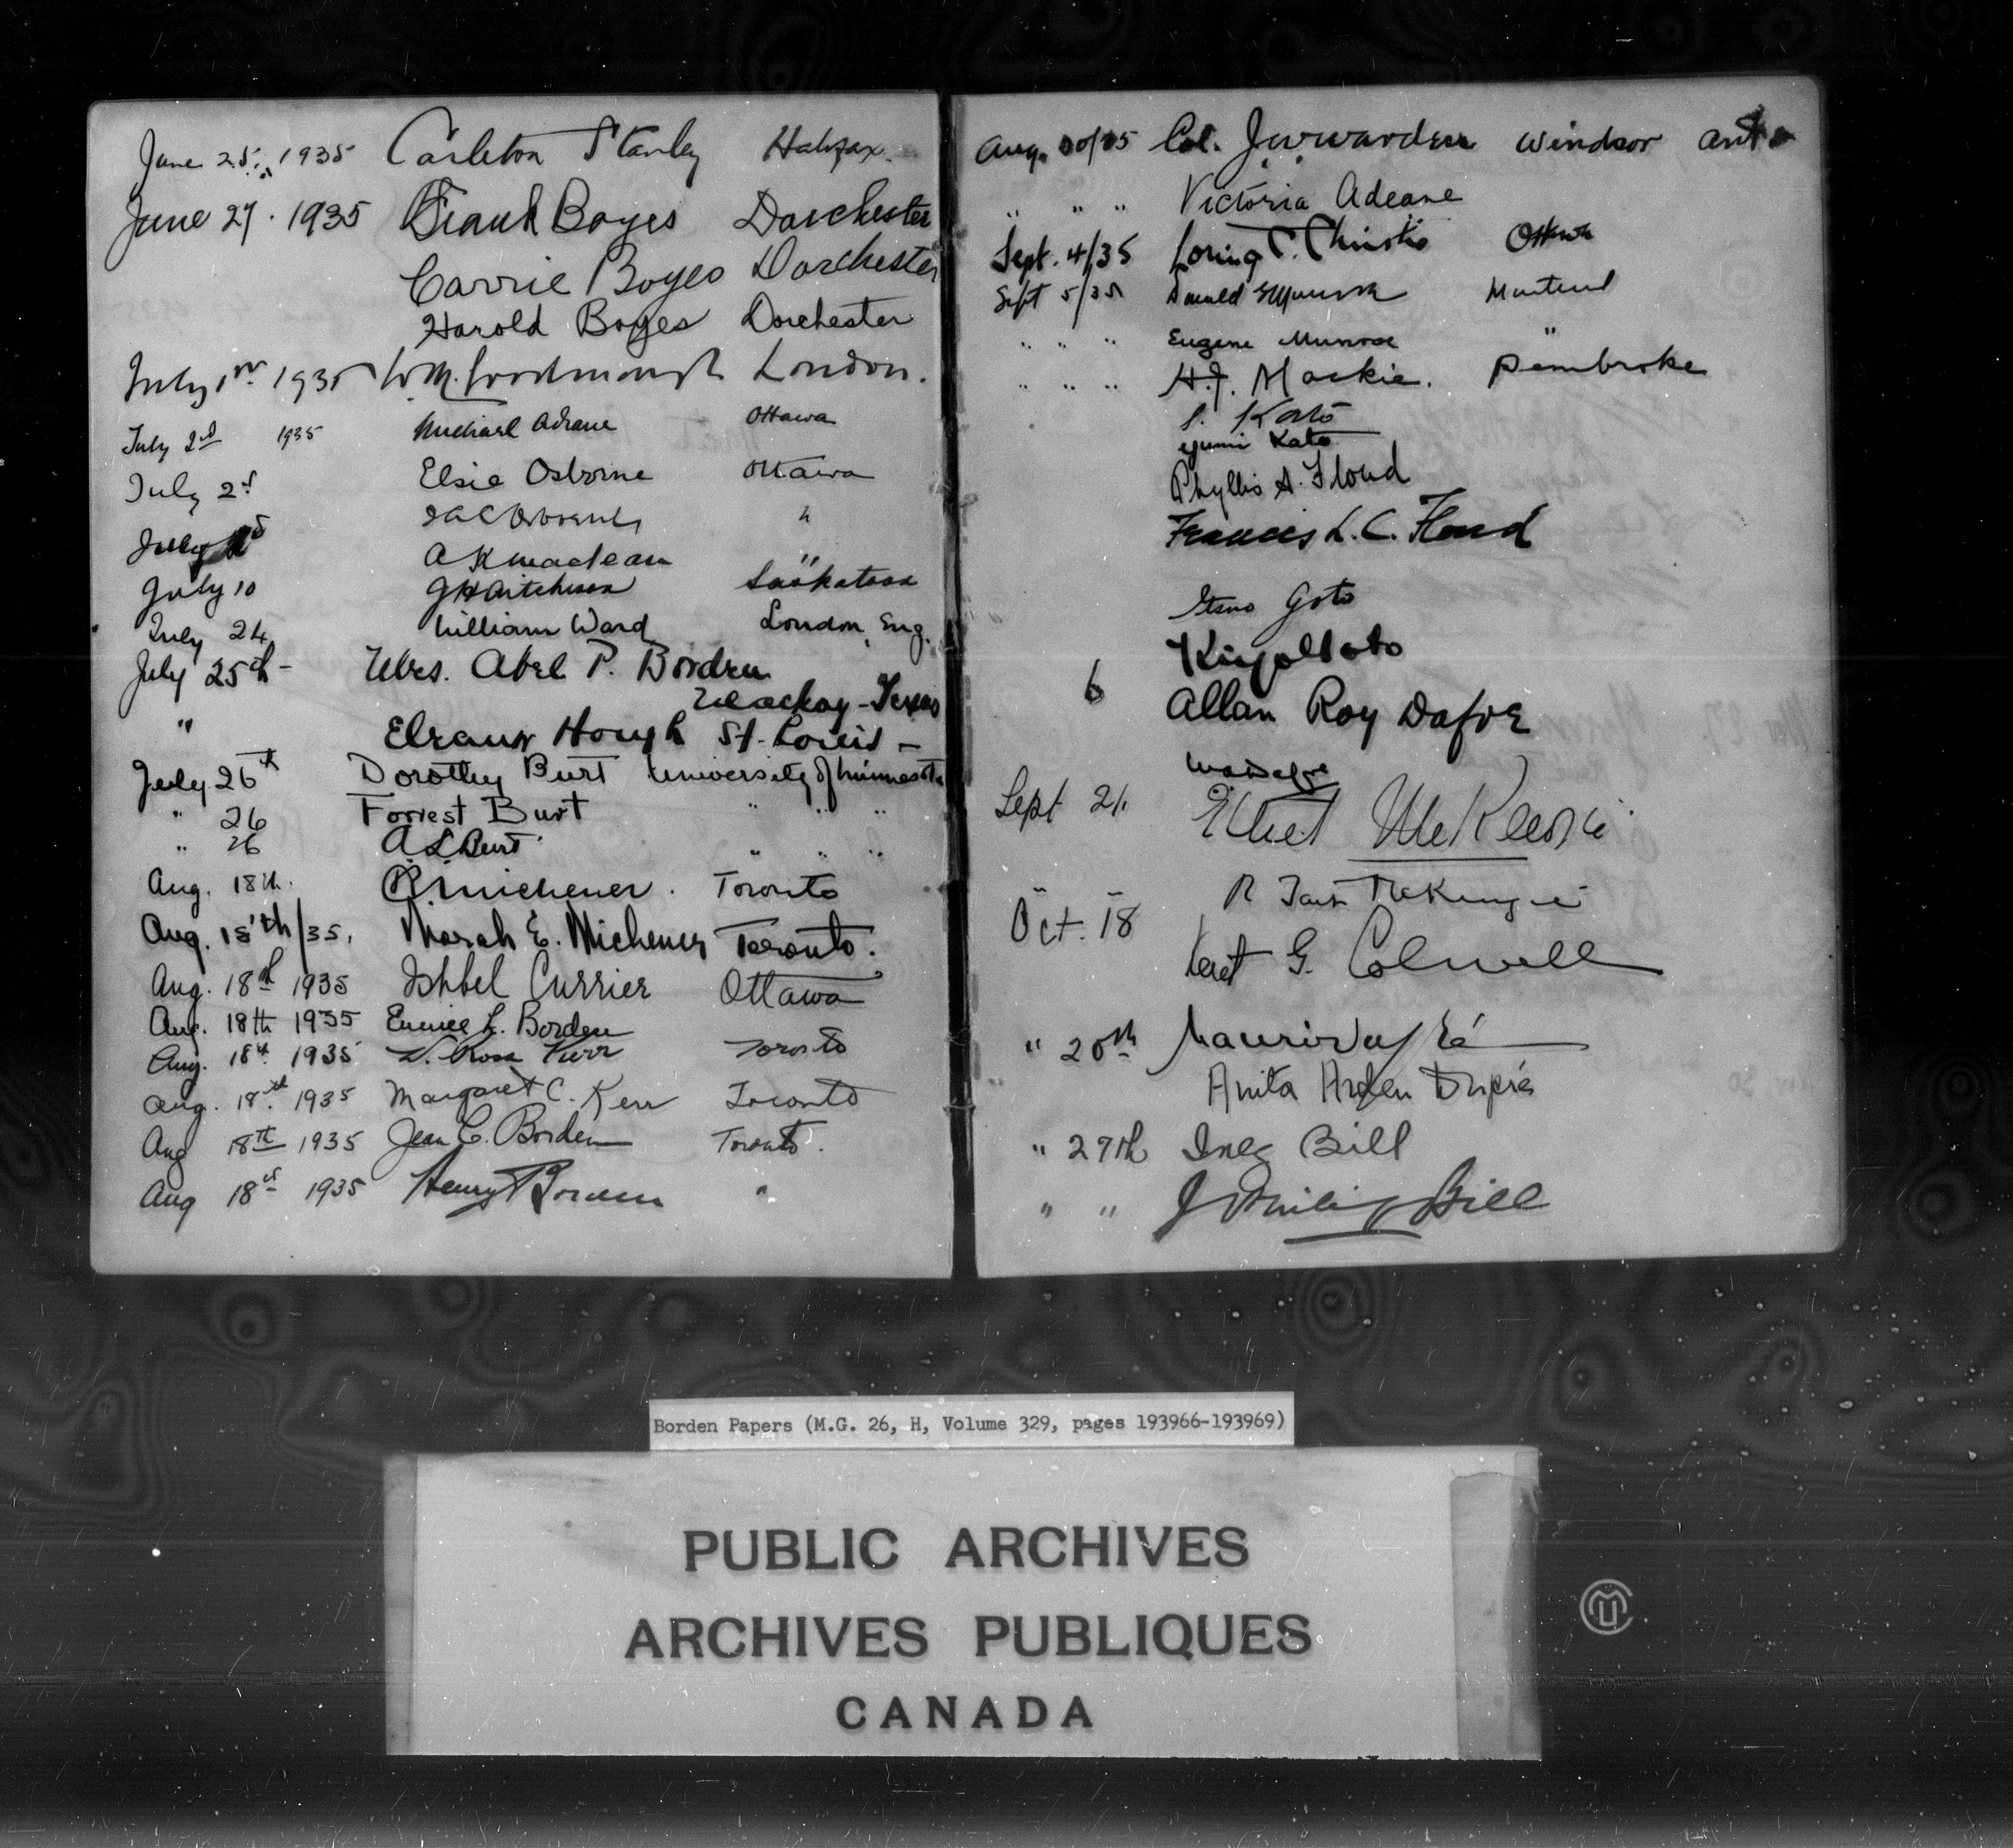 June 25, 1935 Carleton Stanley Halifax.
June 27. 1935 Frank Boyes Dorchester
Carrie Boyes Dorchester
Harold Boyes Dorchester
July 1935 London.
July 2nd 1935 Michael Adeane Ottawa
July 2d Elsie Osborne Ottawa
July "
A K Maclean "
July 10 G H Aitcheson Saskatoon
July 24 William Ward London, Eng.
July 25th - Mrs. Abel P. Borden
Mackay - Texas
" Eleanor Hough St. Louis -
July 26th Dorothy Burt University of Minnesota
" 26 Forrest Burt " " "
" 26 A L Burt " " "
Aug. 18th. R. Michener. Toronto
Aug. 18th/35. Norah E. Michener Toronto.
Aug. 18th 1935 Ishbel Currier Ottawa
Aug. 18th 1935 Eunice L. Borden
Aug. 18th 1935 Ross Kerr Toronto
Aug. 18th 1935 Margaret C. Kerr Toronto
Aug 18th 1935 Jean C. Borden Toronto.
Aug 18th 1935 Henry Borden "
Aug. 30/35 Col. Windsor Ont
" " " Victoria Adeane
Sept. 4/35 Loring C. Christie Ottawa
Sept 5/35 Donald Munroe Montreal
" " " Eugene Munroe "
" " " H.J. Mackie. Pembroke
S. Kato
Yumi Kato
Phyllis A. Floud
Francis L. C. Floud
Goto
6 Allan Roy Dafoe
Sept 21. Ethel McKenzie
R Tait McKenzie
Oct. 18 G. Colwell
" 20th Maurice Dupré
Anita Arden Dupré
" 27th Inez Bill
" " J Philip Bill
Borden Papers (M.G. 26, H, Volume 329, pages 193966-193969)
PUBLIC ARCHIVES
ARCHIVES PUBLIQUES
CANADA